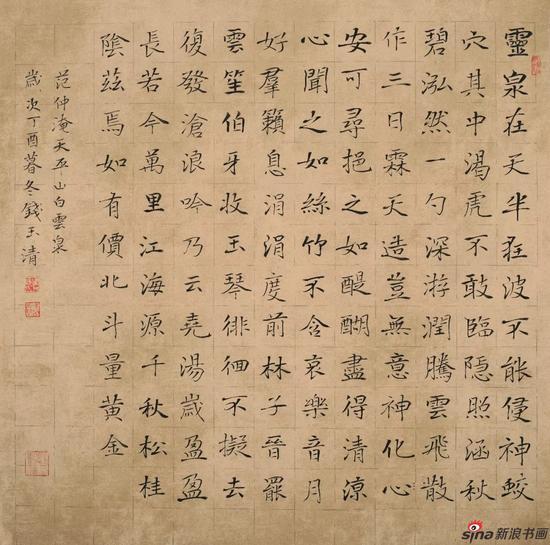 靈泉在天半狂波不能侵神蛟
穴其中渴虎不敢臨隱照涵秋
碧泓然一勺深游潤騰雲飛散
作三日霖天造豈無意神化心
安可尋挹之如醍醐盡得清涼
心聞之如絲竹不含哀樂音月
好羣籟息涓涓度前林子晉罷
雲笙伯牙收玉琴徘徊不擬去
復發滄浪吟乃云堯湯歲盈盈
長若今萬里江海源千秋松桂
陰茲焉如有價北斗量黃金
范仲淹天平山白雲泉
歲次丁酉暮冬錢玉清
sina新浪书画